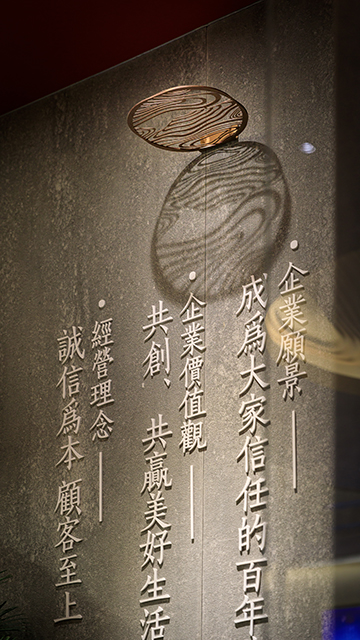 •企業願景——
成爲大家信任的百年
•企業價值觀——
共創、共贏美好生活
•經營理念——
誠信爲本 顧客至上